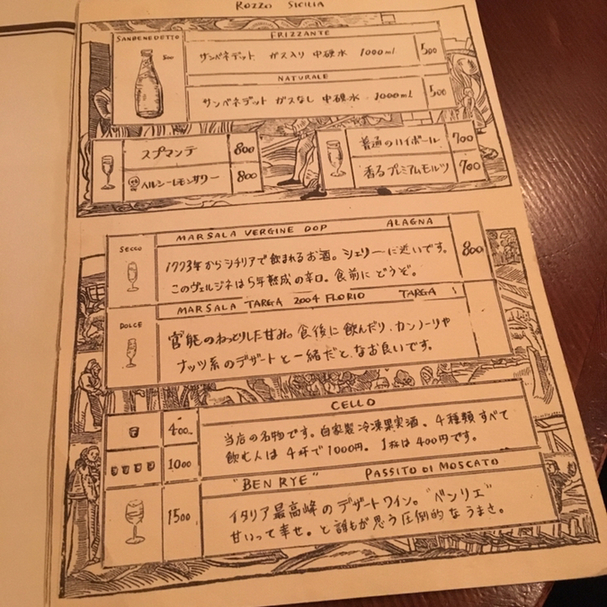 ROZZO SICILIA
SANBENEDETTO
FRIZZANTE
サンベネデット ガス入り 中硬水 1000ml 500
NATURALE
サンベネデット ガスなし 中硬水 1000ml 500
スプマンテ 800
ヘルシーレモンサワー 800
普通のハイボール 700
香るプレミアムモルツ 700
SECCO
MARSALA VERGINE DOP ALAGNA
1773年からシチリアで飲まれるお酒。シェリーに近いです。
このヴェルジネは5年熟成の辛口。食前にどうぞ。
800
MARSALA TARGA 2004 FLORIO TARGA
DOLCE
官能のねっとりした甘み。食後に飲んだり、カンノーリや
ナッツ系のデザートと一緒だと、なお良いです。
CELLO
400
当店の名物です。自家製冷凍果実酒。4種類すべて
1000
飲む人は4杯で1000円。1杯は400円です。
"BEN RYE" PASSITO DI MOSCATO
1500
イタリア最高峰のデザートワイン。"ベンリエ"
甘いって幸せ。と誰もが思う圧倒的なうまさ。